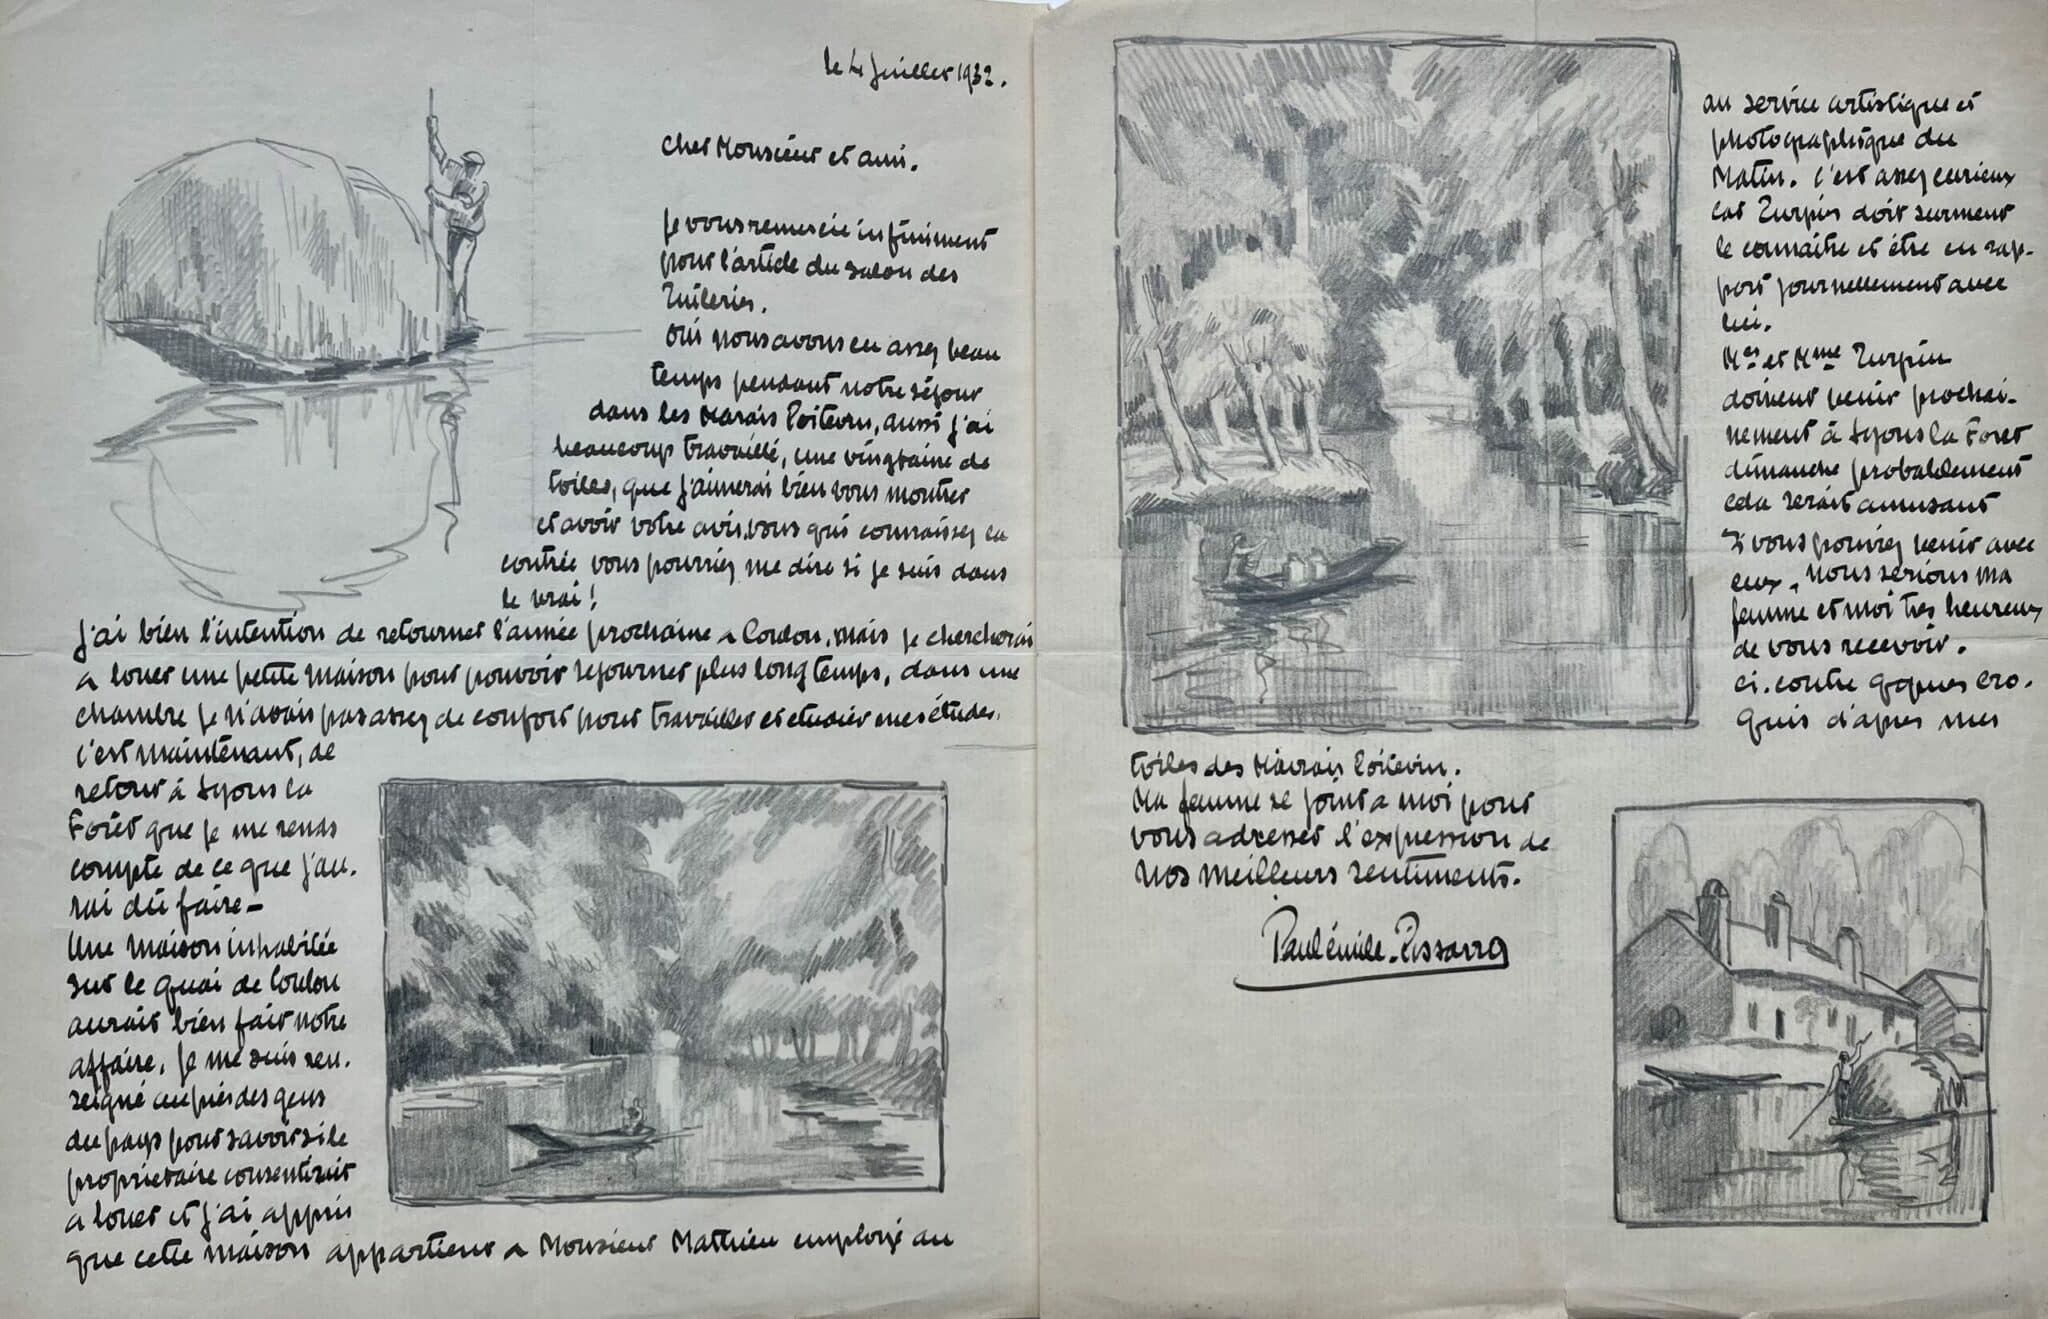 le 4 Juillet 1932.
Cher Monsieur et ami.
Je vous remercie infiniment
pour l'article du Salon des
Tuileries.
Oui nous avons eu assez beau
temps pendant notre séjour
dans les Marais Poitevin, aussi j'ai
beaucoup travaillé, une vingtaine de
toiles, que j'aimerai bien vous montrer
et avoir votre avis. Vous qui connaissez la
contrée vous pourriez me dire si je suis dans
le vrai !
J'ai bien l'intention de retourner l'année prochaine a Coulon, mais je chercherai
a louer une petite maison pour pouvoir sejourner plus longtemps, dans une
chambre je n'avais pas assez de confort pour travailler et etudier mes études.
C'est maintenant, de
retour à Lyons la
Forêt que je me rends
compte de ce que j'au-
rai dû faire –
Une maison inhabitée
sur le Quai de Coulon
aurait bien fait notre
affaire, je me suis ren-
seigné auprès des gens
du pays pour savoir si le
propriétaire consentirait
a louer et j'ai appris
que cette maison appartient a Monsieur Mathieu employé au
au service artistique et
photographique du
Matin. C'est assez curieux
car Turpin doit surement
le connaître et être en rap-
port journellement avec
lui.
Mr et Mme Turpin
doivent venir prochai-
nement à Lyons la Foret
dimanche probablement
cela serait amusant
si vous pouviez venir avec
eux, nous serions ma
femme et moi très heureux
de vous recevoir.
Ci-contre qques cro-
quis d'apres mes
toiles des Marais Poitevin.
Ma femme se joint a moi pour
vous adresser l'expression de
nos meilleurs sentiments.
Paulémile-Pissarro